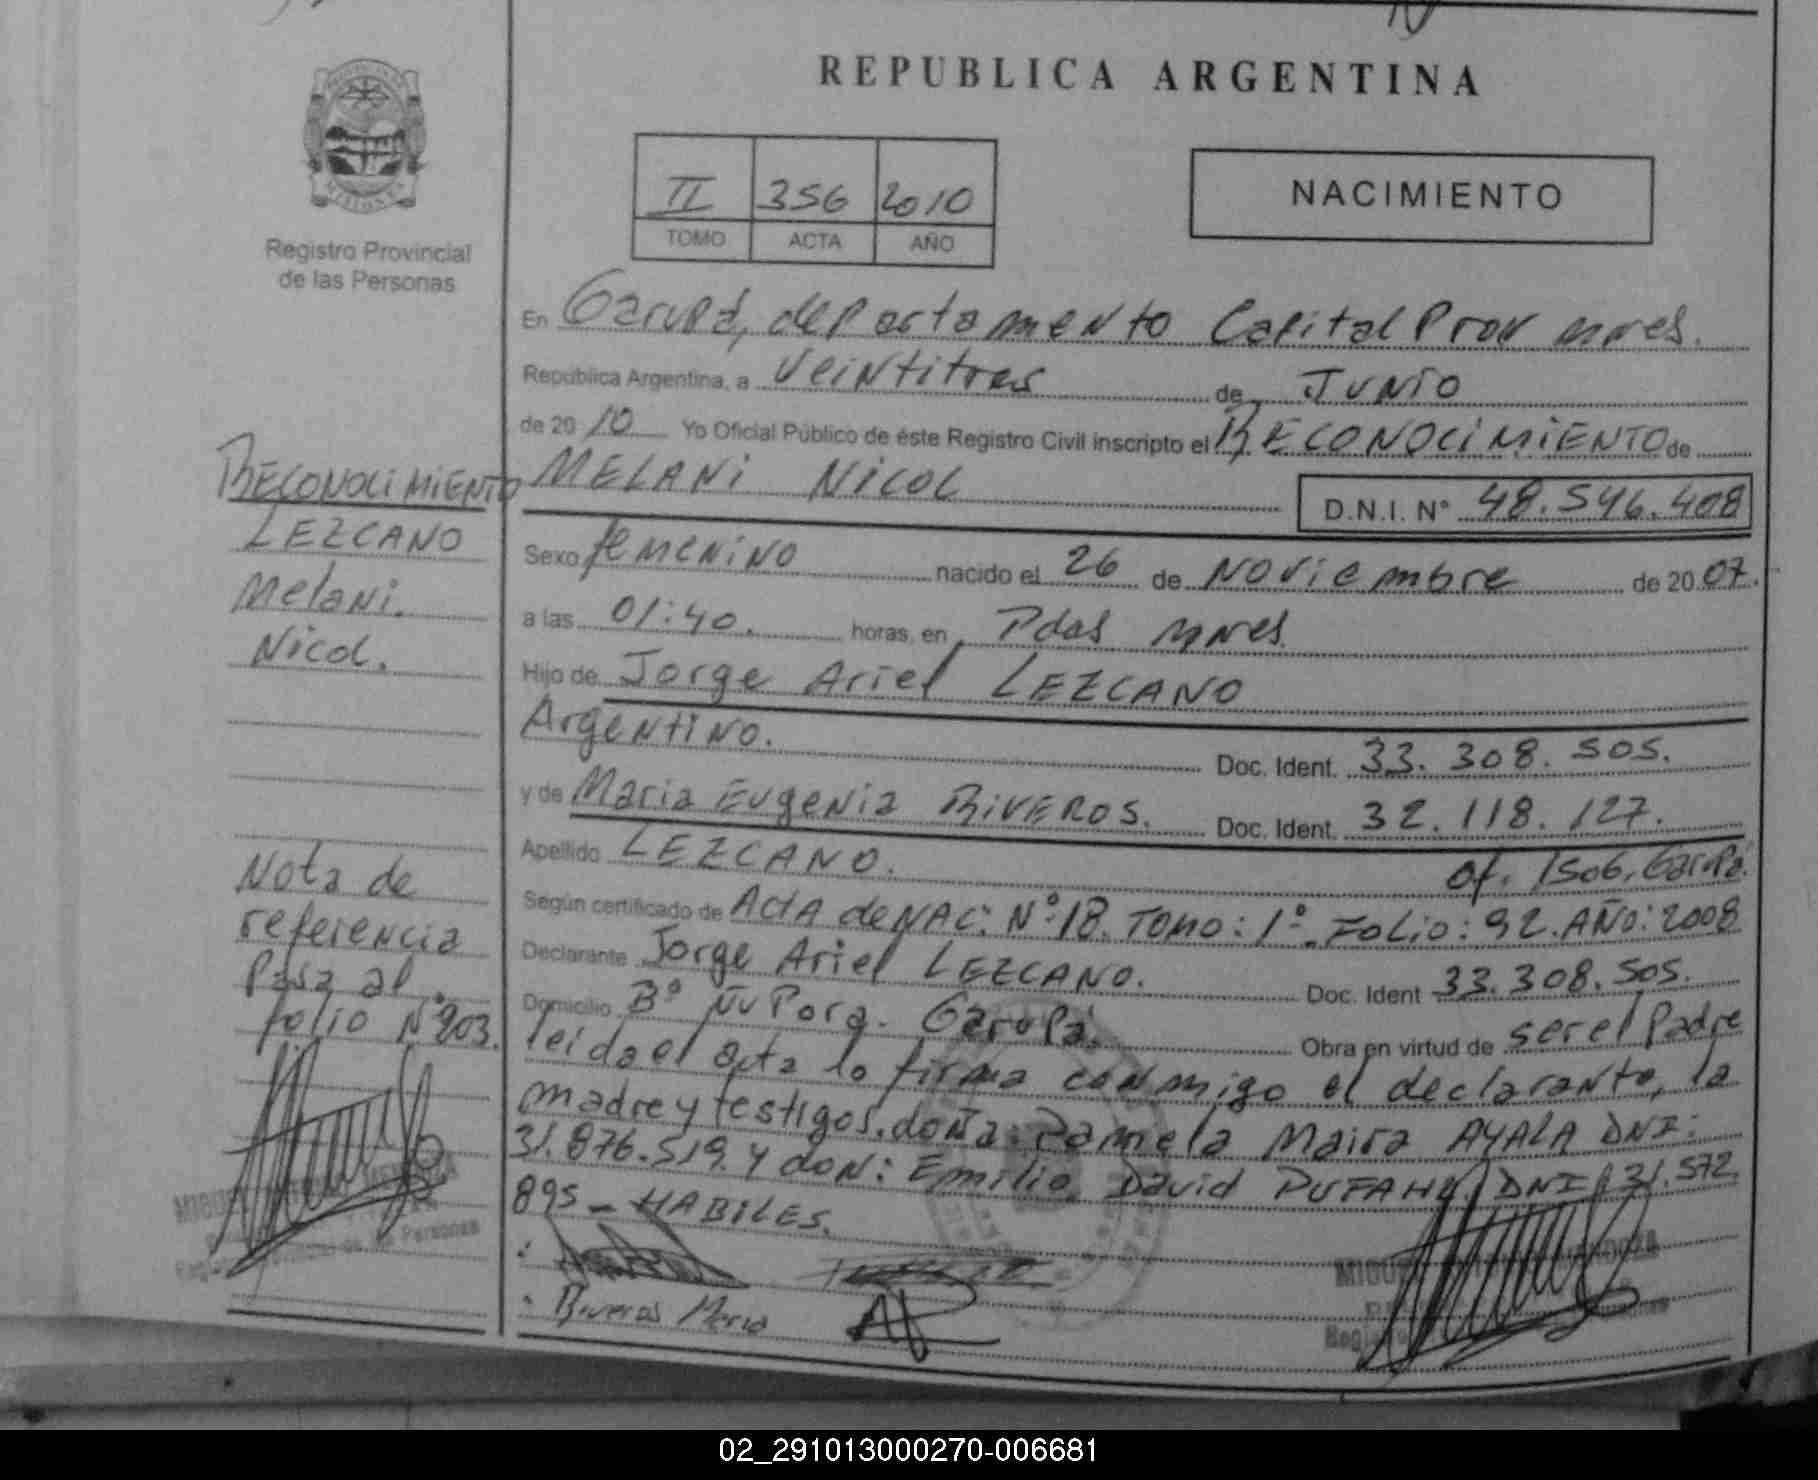 REPUBLICA ARGENTINA
II 356 2010
TOMO ACTA AÑO
NACIMIENTO
Registro Provincial
de las Personas
En Garupá, departamento Capital Prov mnes.
República Argentina, a veintitres de JUNIO
de 2010 Yo Oficial Público de éste Registro Civil inscripto el RECONOCIMIENTO de
MELANI NICOL D.N.I. N° 48.546.408
Sexo femenino nacido el 26 de Noviembre de 2007.
a las 01:40. horas, en Pdas mnes.
Hijo de Jorge Ariel LEZCANO
Argentino. Doc. Ident. 33.308.505.
y de Maria Eugenia RIVEROS. Doc. Ident. 32.118.127.
Apellido LEZCANO. of. 1506. Garupá.
Según certificado de ACTA de NAC: N°:18. TOMO: 1°. FOLIO: 92. AÑO: 2008
Declarante Jorge Ariel LEZCANO. Doc. Ident 33.308.505.
Domicilio B° Ñu Pora. Garupá. Obra en virtud de ser el Padre
leida el acta lo firma conmigo el declarante, la
madre y testigos. doña: Pamela Maira AYALA DNI:
31.876.519. y don: Emilio David DNI 31.572.
895 - HABILES.
Riveros Maria
RECONOCIMIENTO
LEZCANO
Melani.
Nicol.
Nota de
referencia
Pasa al
folio N° 203.
02_291013000270-006681